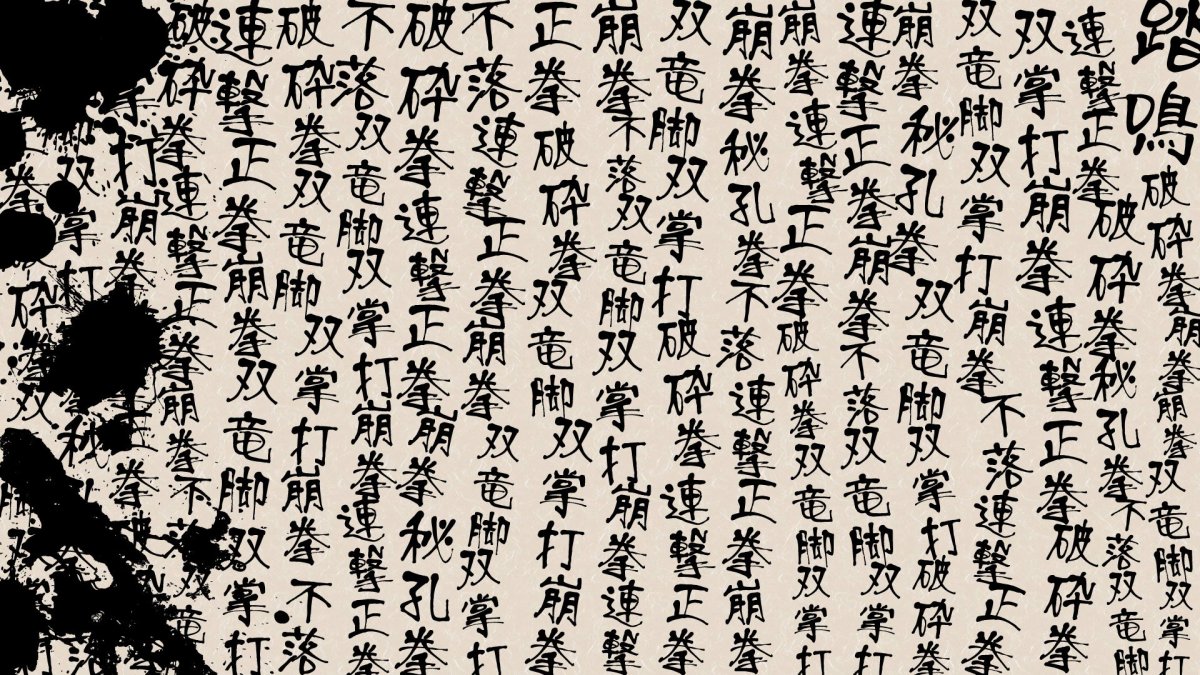 踏鳴破砕拳崩拳双竜脚双掌打
連撃正拳破砕拳秘孔拳不落双竜脚
双掌打崩拳連撃正拳破砕拳
双竜脚双掌打崩拳不落連撃正拳
崩拳秘孔拳双竜脚双掌打破砕拳
連撃正拳崩拳不落双竜脚双掌打
崩拳連撃正拳破砕拳双竜脚双掌打
崩拳秘孔拳不落連撃正拳崩拳
双竜脚双掌打破砕拳連撃正拳
崩拳不落双竜脚双掌打崩拳連撃
正拳破砕拳双竜脚双掌打崩拳
不落連撃正拳崩拳双竜脚双掌打
破砕拳連撃正拳崩拳秘孔拳
不落双竜脚双掌打崩拳連撃正拳
破砕拳双竜脚双掌打崩拳不落
連撃正拳崩拳双竜脚双掌打
破砕拳連撃正拳崩拳不落双竜
打崩拳拳
双掌打秘
拳砕拳双